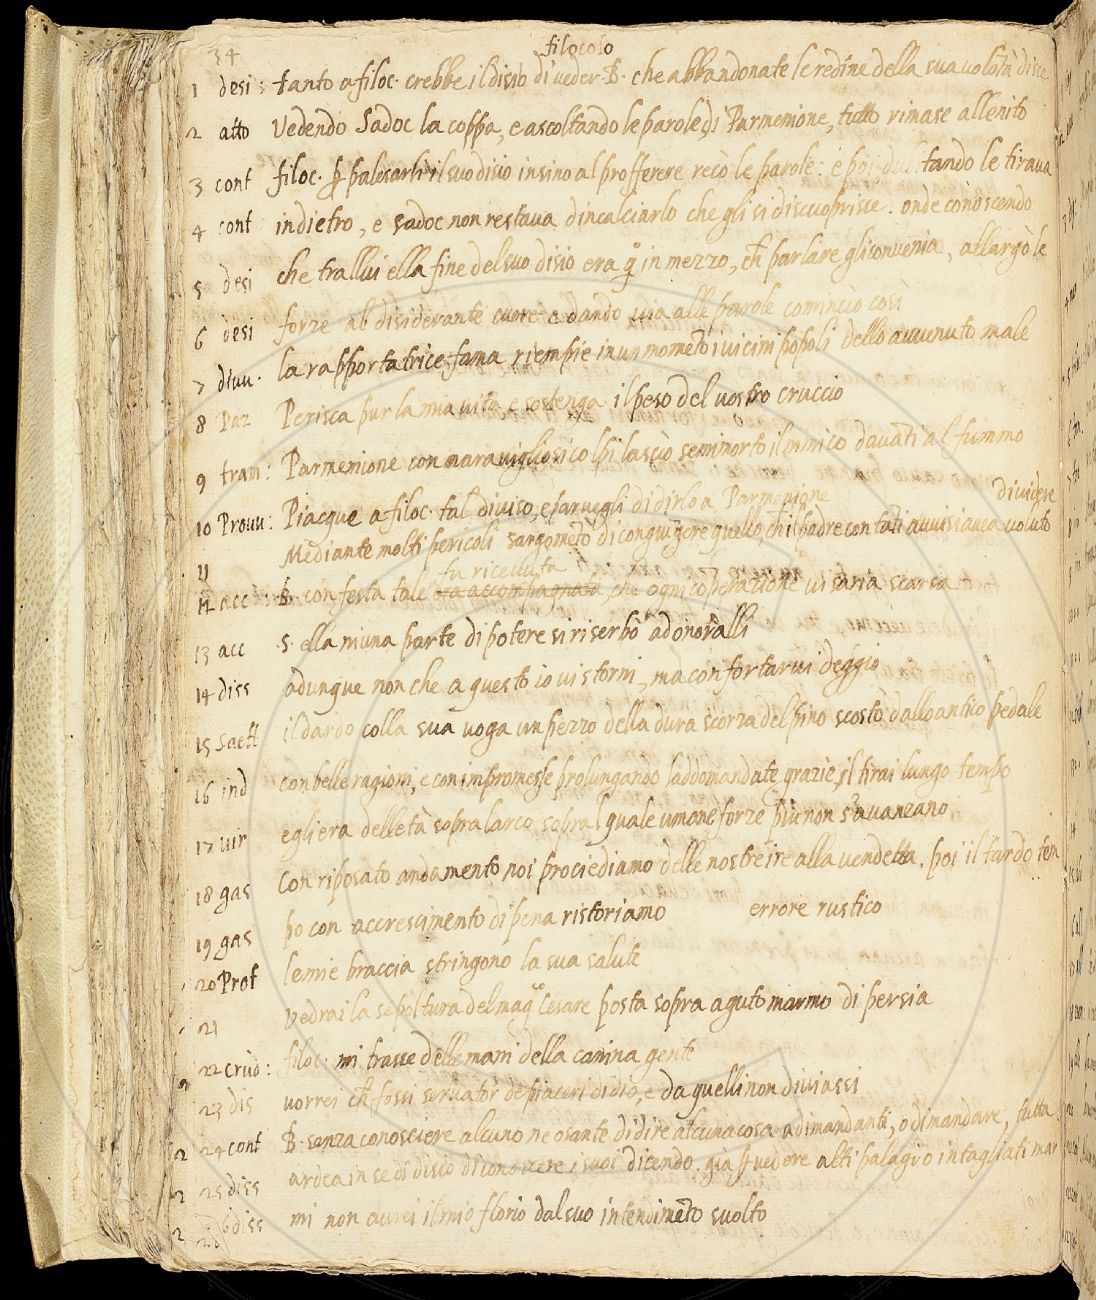 34
filocolo
1 desi : tanto a filoc. crebbe il disio di veder B. che abbandonate le redine della sua volōtà disse
2 atto vedendo Sadoc la coppa, e ascoltando le parole di Parmenione, tutto rimase allenito
3 cont filoc. p palesarli il suo disio insino al profferere recò le parole : e poi dubitando le tirava
4 cont indietro, e sadoc non restava dincalciarlo che gli si discuoprisse. onde conoscendo
5 desi che trallui ella fine del suo disio era q in mezzo, ch parlare gli convenia, allargò le
6 desi forze al disiderante cuore e dando via alle parole cominciò così
7 divu. la rapportatrice fama riempie in un momēto i vicini popoli dello avvenuto male
8 Paz Perisca pur la mia vita e sostenga il peso del vostro cruccio
9 tram : Parmenione con maravigliosi colpi lasciò seminorto il nimico davāti al fummo
10 Provv : Piacque a filoc. tal diviso, e farvegli di dirlo a Parmenione
dividere
11 Mediante molti pericoli sargomētò di congiugnere quello, ch il padre con tāti avvisi avea voluto
fu ricevuta
12 acc : B. con festa tale era accompagnata che ogni coperazione vi saria scarsa
13 acc s. ella niuna parte di potere si riserbò ad onoralli
14 diss adunque non che a questo io vi storni, ma confortarvi deggio
15 saett il dardo colla sua voga un pezzo della dura scorza del pino scostò dallo antico pedale
16 ind con belle ragioni, e con impromesse prolungando laddomandate grazie, il tirai lungo tempo
17 vir egli era delletà sopra larco sopra l quale umane forze più non s'avanzano
18 gas Con riposato andamento noi prociediamo delle nostre ire alla vendetta, poi il tardo tem
19 gas po con accrescimento di pena ristoriamo errore rustico
20 Prof le mie braccia stringono la sua salute
21 vedrai la sepoltura del mag Cesare posta sopra aguto marmo di persia
22 crud : filoc. mi trasse delle mani della canina gente
23 dis vorrei ch fossi servator de piaceri di dio, e da quelli non diviassi
24 cont B. senza conosciere alcuno ne osante di dire alcuna cosa a dimandanti, o dimandare, tutta
25 diss ardea in se di disio di conoscere i suoi dicendo. già p vedere alti palagi o intagliati mar
26 diss mi non avrei il mio florio dal suo intendimēto svolto